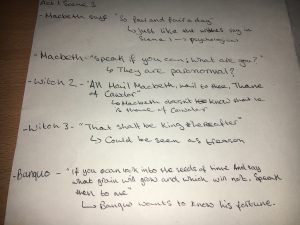 Act 1 Scene 3
- Macbeth says "So foul and fair a day"
↳ Just like the witches say in
Scene 1 →
- Macbeth - "Speak if you can; What are you?"
↳ They are paranormal?
- Witch 2 - "All Hail Macbeth, hail to thee, Thane
of Cawdor"
↳ Macbeth doesn't know that he
is thane of Cawdor
- Witch 3 - "That shall be king hereafter"
↳ Could be seen as treason
- Banquo - "If you can look into the seeds of time And say
what grain will grow and which will not, speak
then to me"
↳ Banquo wants to know his fortune.